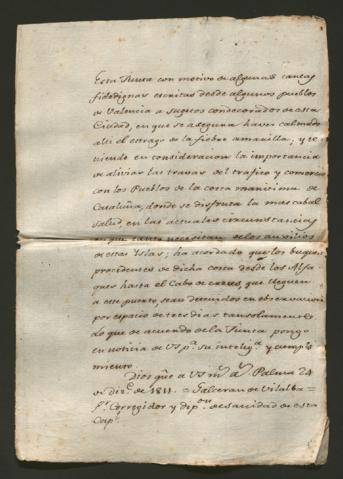 Esta Junta con motivo de algunas cartas
fidedignas escritas desde algunos pueblos
de Valencia a sugetos condecorados de esta
Ciudad, en que se asegura haver calmado
alli el estrago de la fiebre amarilla, y te
niendo en consideracion la importancia
de aliviar las travas del trafico y comercio
con los Pueblos de la costa maritima de
Cataluña, donde se disfruta la mas cabal
salud, en las actuales circunstancias
en que tanto necesitan de los auxilios
de estas Yslas; ha acordado que los buques
procedentes de dicha costa desde los Alfa
ques hasta el Cabo de creus, que lleguen
a este puerto sean detenidos en observacion
por espacio de tres dias tansolamente
Lo que de acuerdo de la Junta pongo
en noticia de VS pª. su inteligª. y cumpli
miento.
Dios gũe a VS mˢ. aˢ. Palma 24
de Dizᵉ. de 1811. = Galceran de Vilalba =
Sʳ. Corregidor y dipᵒⁿ. de sanidad de esta
Capˡ.